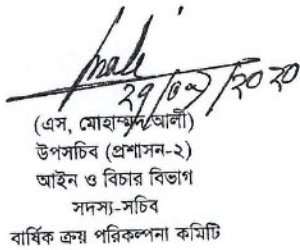 ২৭/০৭/২০২০
(এস, মোহাম্মদ আলী)
উপসচিব (প্রশাসন-২)
আইন ও বিচার বিভাগ
সদস্য-সচিব
বার্ষিক ক্রয় পরিকল্পনা কমিটি